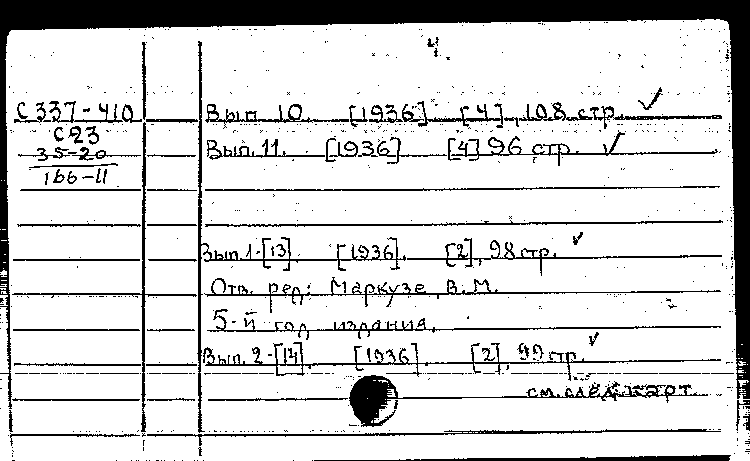 4.
С 337-410 Вып. 10. [1936] [4], 108 стр. ✓
С23
35-20 Вып. 11. [1936] [4] 96 стр. ✓
166-11
Вып. 1-[13]. [1936]. [2], 98 стр. ✓
Отв. ред: Маркузе В.М.
5-й год издания.
Вып. 2-[14]. [1936]. [2], 99 стр. ✓
см. след. карт.